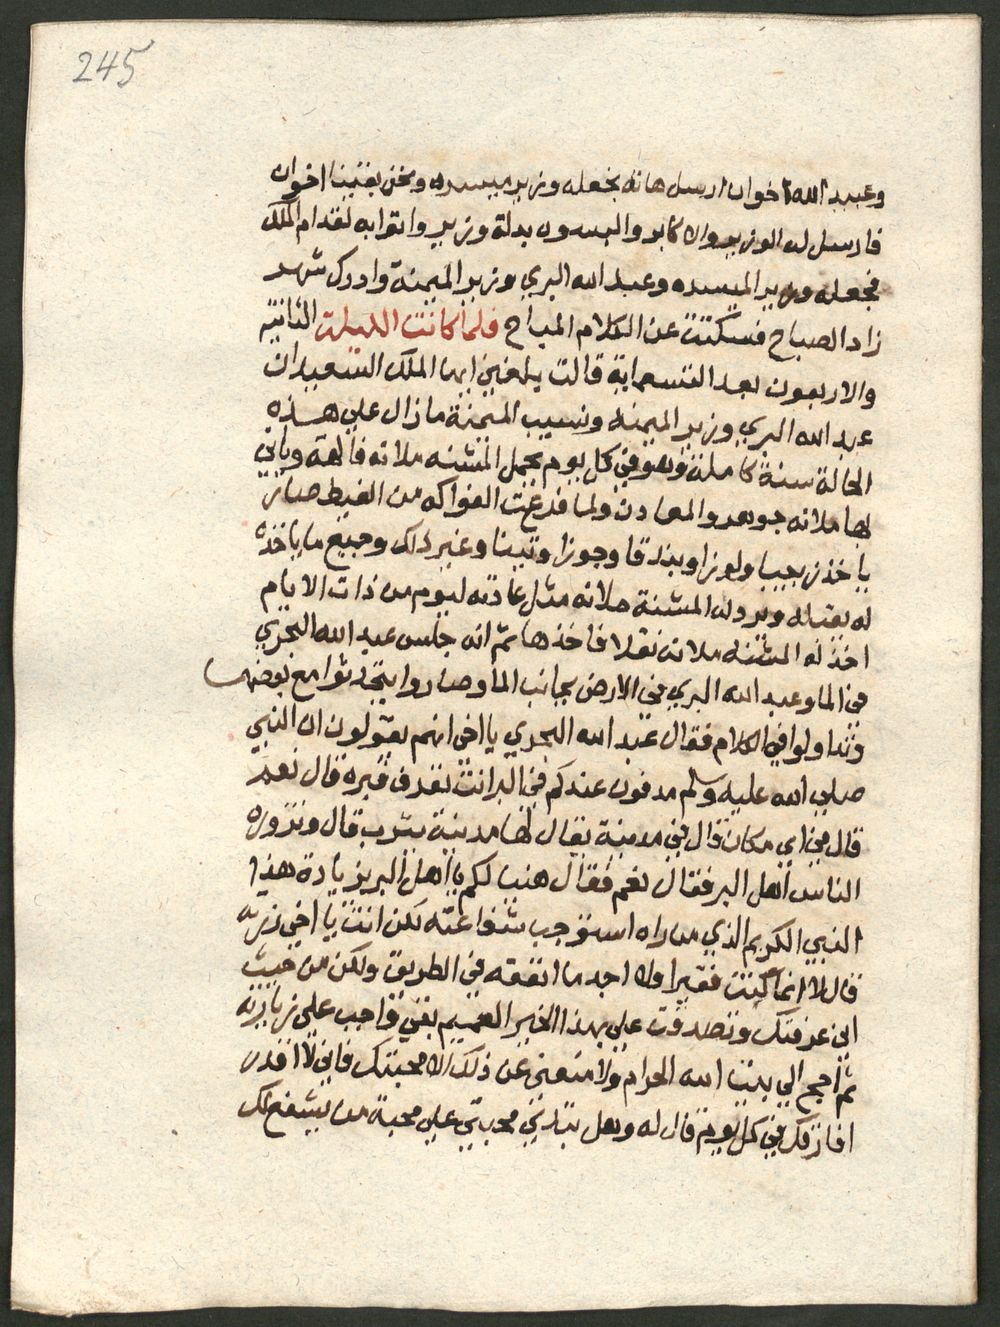 245
وعبد الله اخوان ارسل هاته نجعله وزير ميسره ونحن بقينا اخوان
فارسل له الوزير والاكابر والبسوه بدلة وزير واتوا به لقدام الملك
فجعله وزير الميسره وعبد الله البري وزير الميمنة وادرك شهر
زاد الصباح فسكتت عن الكلام المباح فلما كانت الليلة الثانية
والاربعون بعد التسعماية قالت بلغني ايها الملك السعيد ان
عبد الله البري وزير الميمنه ونسيب الملك ما زال علي هذه
الحالة سنة كاملة وهو في كل يوم يحمل المشنه ملانه فاكهة وياتي
بها ملانه جوهر والمعادن ولما فرغت الفواكه من الغيط صار
ياخذ زبيبا ولوزا وبندقا وجوزا وتينا وغير ذلك وجميع ما ياخذه
له يقبله ويرد له المشنة ملانه مثل عادته ليوم من ذات الايام
اخذ له المشنه ملانه نقلا فاخذها ثم انه جلس عبد الله البحري
في الما وعبد الله البري في الارض بجانب الما وصاروا يتحدثوا مع بعضهما
وتداولوا في الكلام فقال عبد الله البحري يا اخي انهم يقولون ان النبي
صلي الله عليه وسلم مدفون عندكم في البر انت تعرف قبره قال نعم
قال في اي مكان قال في مدينة يقال لها مدينة يثرب قال وتزوره
الناس اهل البر فقال نعم فقال هنيا لكم يا اهل البر زيادة هذا
النبي الكريم الذي من راه استوجب شفاعته لكن انت يا اخي زرته
قال لا انما كنت فقيرا ولا اجد ما انفقه في الطريق ولكن من حيث
اني عرفتك وتصدقت علي بهذا الخير العميم بقي واجب علي زيارته
ثم احج الي بيت الله الحرام ولا منعني عن ذلك الا محبتك فاني لا اقدر
افارقك في كل يوم قال له وهل تبدي محبتي علي محبة من يشفع لك